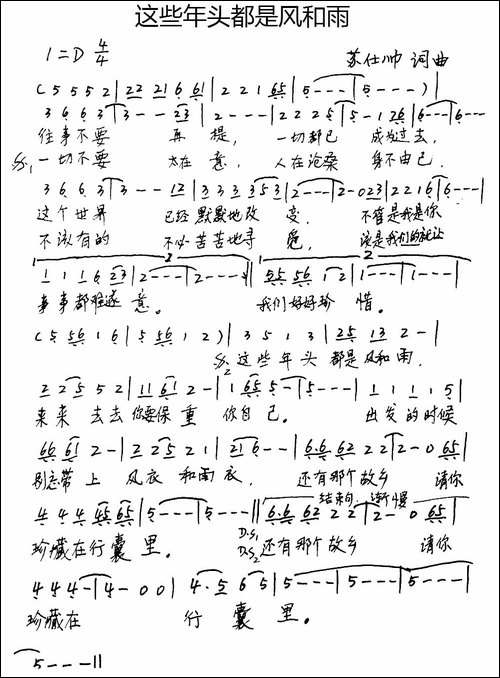 这些年头都是风和雨
1=D 4/4 苏仕帅 词曲
(5 5 5 2 | 22 21 6 61 | 2 2 1 65 | 5 - - - | 5 - - - ) |
3 6 6 3 | 3 - - 23 | 2 - - - | 2 2 2 5 | 5 - 1 26 | 6 - - - | 6 - - -
往事不要 再 提, 一切都已 成为过去,
一切不要 太在 意, 人在沧桑 身不由己.
3 6 6 3 | 3 - - 12 | 3 3 3 3 5 3 | 2 - - - | 2 - 0 23 | 2 2 1 6 | 6 - - - |
这个世界 已经默默地改 变. 不管是我是你
不该有的 不必苦苦地寻 觅, 该是我们的就让
1 1 1 6 23 | 2 - - - | 2 - - - :|| 55 56 1 2 | 1 - - - | 1 - - - |
事事都难遂 意. 我们好好珍 惜.
(5 56 1 6 | 5 56 1 2) | 3 5 1 3 | 25 13 2 - |
这些年头 都是风和雨.
2 2 5 5 2 | 11 61 2 - | 1 65 5 - | 5 - - - | 1 1 1 1 5 |
来来 去去 你要保重 你自己. 出发的时候
66 61 2 - | 2 2 5 2 1 | 21 6 - - | 6.6 62 2 2 | 2 - 0 65 |
别忘带 上 风衣 和雨衣, 还有那个故乡 请你
结束句 渐慢
4 4 4 45 65 | 5 - - - | 5 - - - || 6.6 62 2 2 | 2 - 0 65 |
珍藏在行囊 里。 D.S.1 D.S.2 还有那个故乡 请你
4 4 4 - | 4 - 0 0 | 4 . 5 6 5 | 5 - - - | 5 - - - | 5 - - - |
珍藏在 行 囊 里。
5 - - - ||